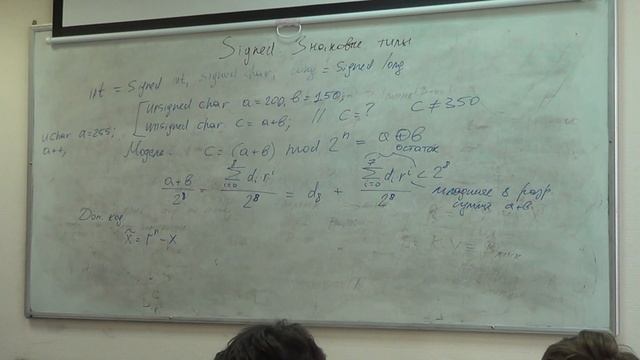 Signed. Знаковые типы
int = Signed int, signed char, long = Signed long
unsigned char a=200, b=150;
unsigned char c=a+b; // c=? C≠350
uchar a=255;
a++;
Модель. C=(a+b) mod 2ⁿ = a⊕b
остаток
(a+b)/2⁸ = (∑_{i=0}^{8} dᵢ rⁱ)/2⁸ = d₈ + (∑_{i=0}^{7} dᵢ rⁱ)/2⁸ < 2⁸
младшие 8 разр
суммы a+b
Доп. код
x̃ = rⁿ - x